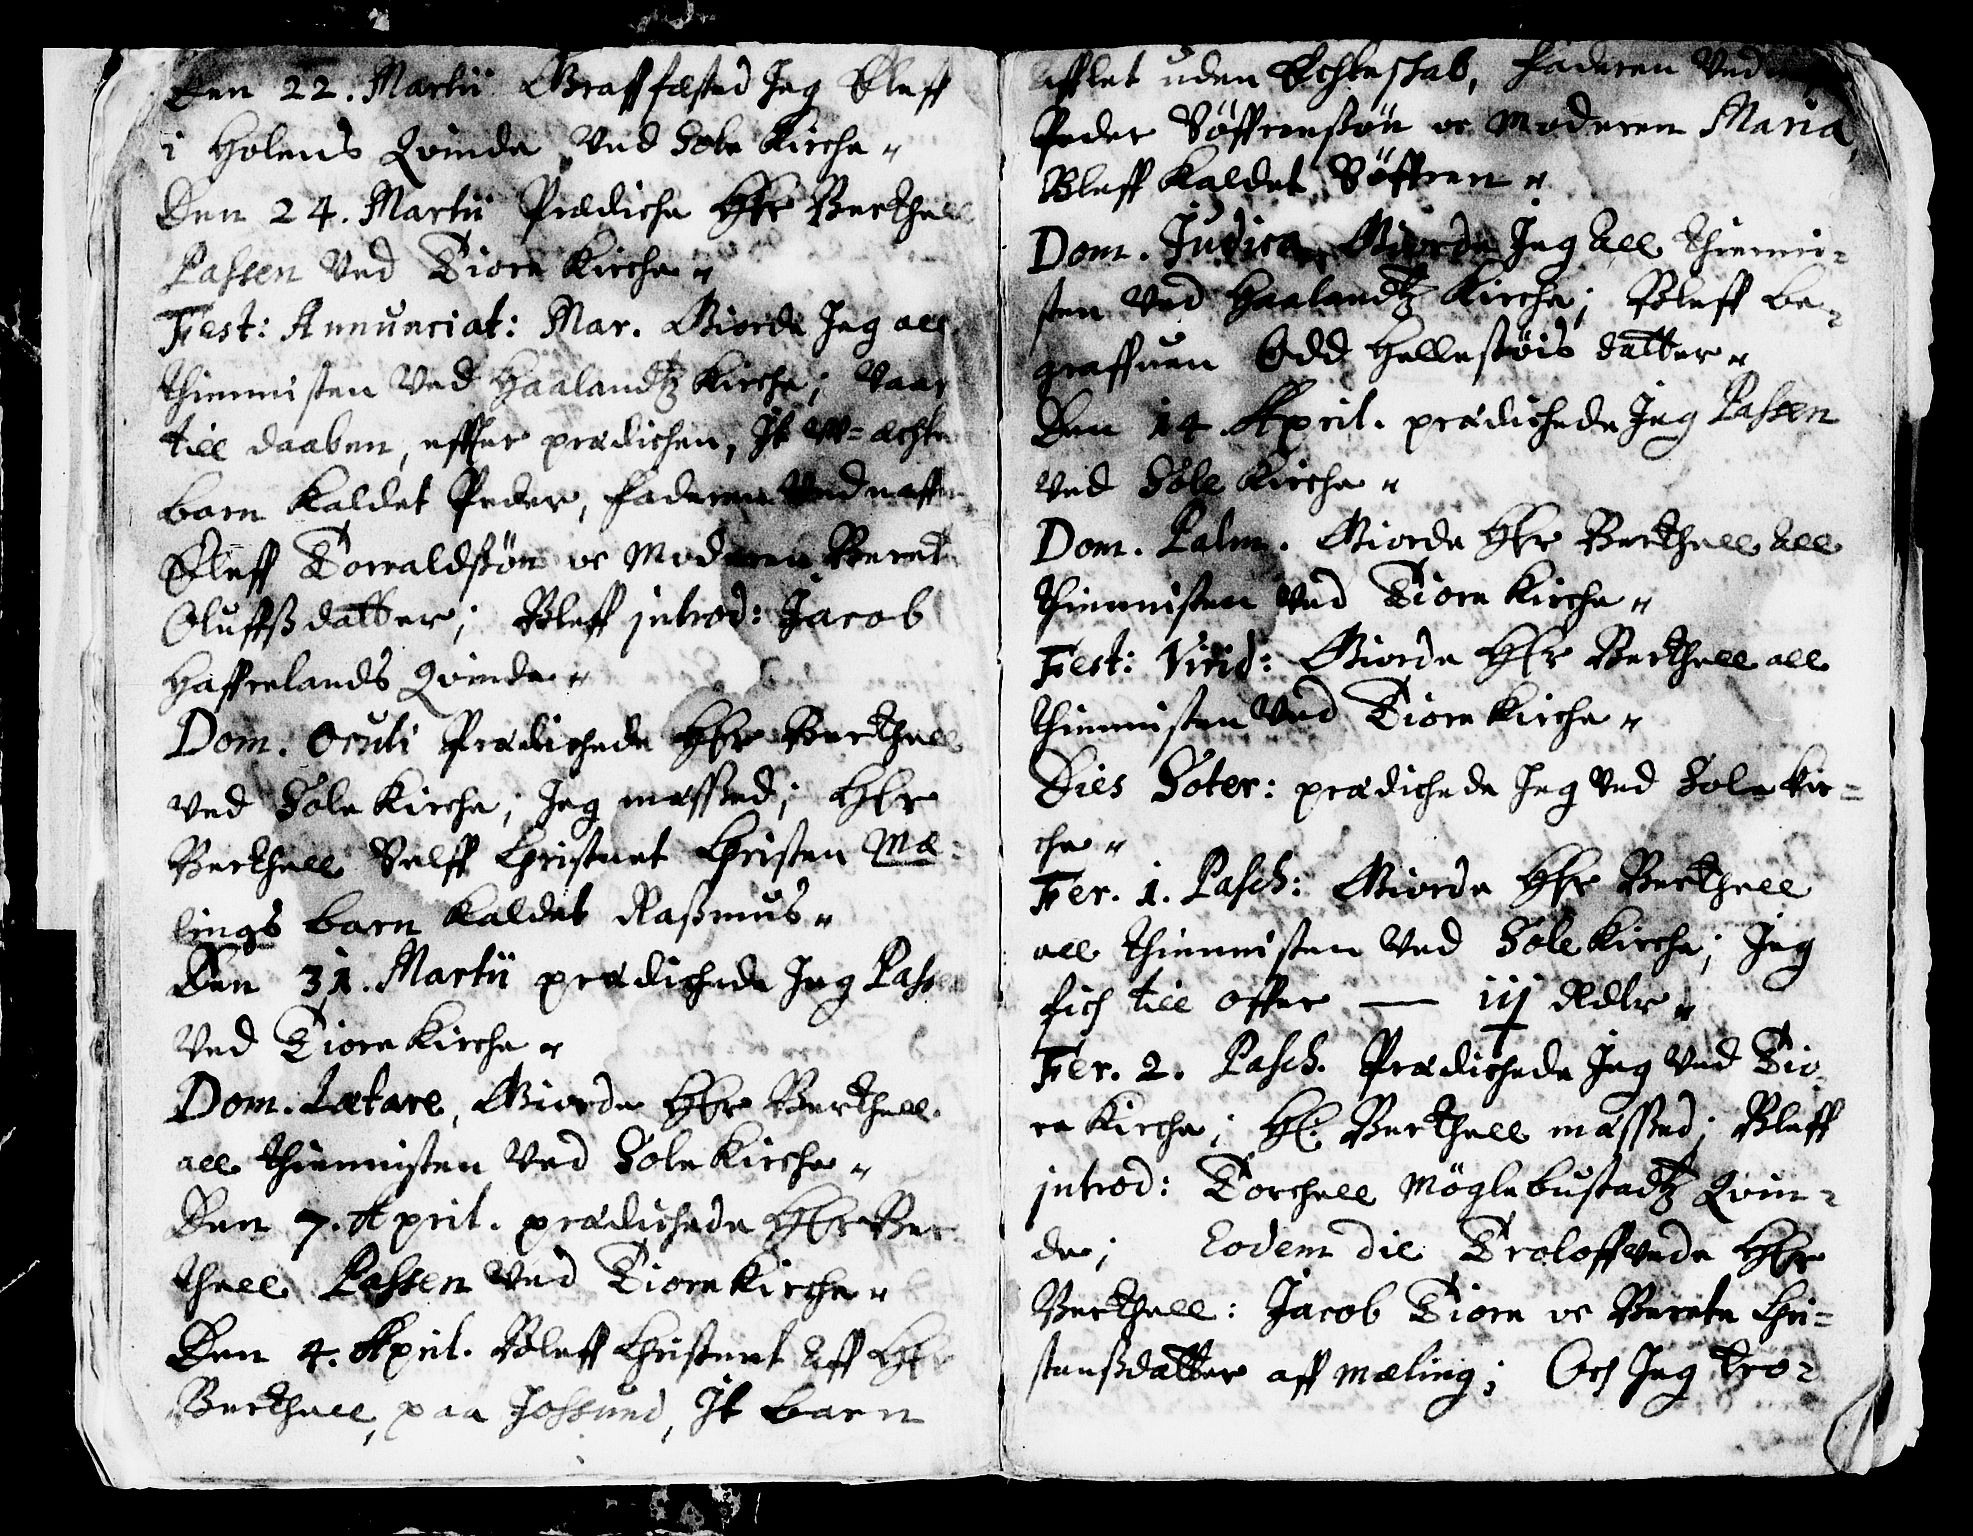 Den 22. Martii Graffæsted Jeg Eleff
i Holens Qvinde Ved Sole Kirche„
Den 24. Martii Prædiche Hr Berthell
Passen Ved Tiore Kirche„
Fest: Annunciat: Mar. Giorde Jeg all
thiennisten Ved Haalandtz Kirche; Vaar
till daaben, effter prædichen, It V=æchte
barn kaldet Peder, Faderen Vednaffn
Eleff Torraldsøn oc Moderen Beret
Oluffsdatter; Bleff introd: Jacob
Haffrelands Qvinde„
Dom. Oculi Prædichede Her Berthell
Ved Sole Kirche, Jeg messed; Her
Berthell Selff Christnet Christen Mæ-
lings barn kaldet Rasmus„
Den 31. Martii prædichede Jeg Passen
Ved Tiore Kirche„
Dom. Lætare, Giorde Her Berthell
all thiennisten Ved Sole Kirche„
Den 7. April. prædichede Her Ber
thell Passen Ved Tiore Kirche„
Den 4. April. Bleff Christnet Aff Her
Berthell, paa Jossund, It barn
Afflet uden Echteskab, Faderen Ved
Peder Söffrensøn oc Moderen Maria,
Bleff kaldet Söffren„
Dom. Judica, Giorde Jeg All thienni-
sten Ved Haalandtz Kirche; Bleff be-
graffuen Odd Hellestøis datter„
Den 14 April. prædichede Jeg Passen
Ved Sole Kirche„
Dom. Palm. Giorde Her Berthell All
thiennisten Ved Tiore Kirche„
Fest: Virid: Giorde Her Berthell all
thiennisten Ved Tiore Kirche„
Dies Soter: prædichede Jeg Ved Sole Kir=
che„
Fer. 1. Pasch: Giorde Her Berthell
all thiennisten Ved Sole Kirche; Jeg
fich till offer — iij Rdlr„
Fer. 2. Pasch. Prædichede Jeg Ved Tio-
re Kirche; H. Berthell messed; Bleff
introd: Torchell Möglebustadtz Qvin-
de; Eodem die Troloffvede Her
Berthell: Jacob Tiore oc Berete Chri-
stensdatter aff Mæling; Och Jeg tro-